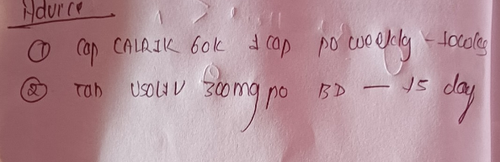 Advice
① Cap CALRIK 60k 1 cap po weekly -
② Tab USOLIV 300mg po BD — 15 day